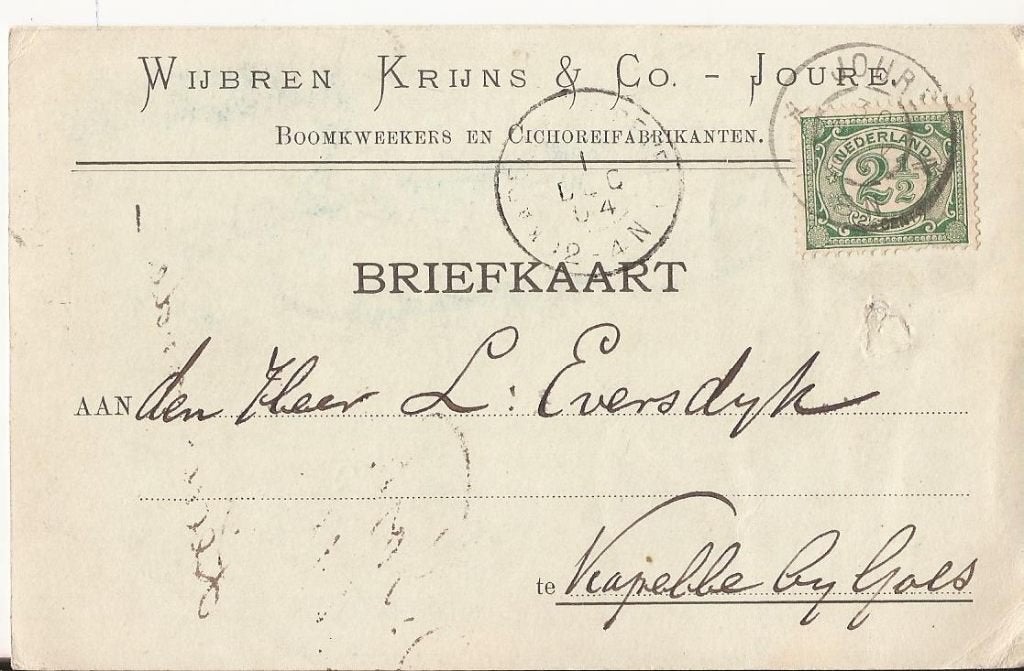 WIJBREN KRIJNS & CO. - JOURE.
BOOMKWEEKERS EN CICHOREIFABRIKANTEN.
JOURE
NEDERLAND
2½
1
DEC
04
12-4N
BRIEFKAART
AAN den Heer L: Eversdyk
te Kapelle by Goes